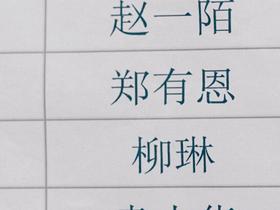 赵一陌
郑有恩
柳琳